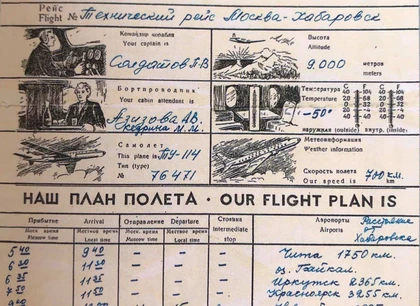 Рейс
Flight № Технический рейс Москва-Хабаровск
Командир корабля
Your captain is
Солдатов А.В
Высота
Altitude
9.000 метров
meters
Бортпроводник
Your cabin attendant is
Азизова А.В.
М.М.
Температура
Temperature
C F C F
-50°
наружная (outside) внутр. (inside)
Самолет
This plane is a ТУ-114
Тип (type)
№ 76471
Метеоинформация
Weather information
Скорость полета
Our speed is 700 км.
НАШ ПЛАН ПОЛЕТА · OUR FLIGHT PLAN IS
Прибытие Arrival Отправление Departure Стоянка Аэропорты Расстояние от Хабаровска
Моск. время Местное время Моск. время Местное время Intermediate stop Airports
Moscow time Local time Moscow time Local time
5 40 9 40 – – – Чита 1750 км.
оз. Байкал.
Иркутск 2365 км.
Красноярск 3255 км.